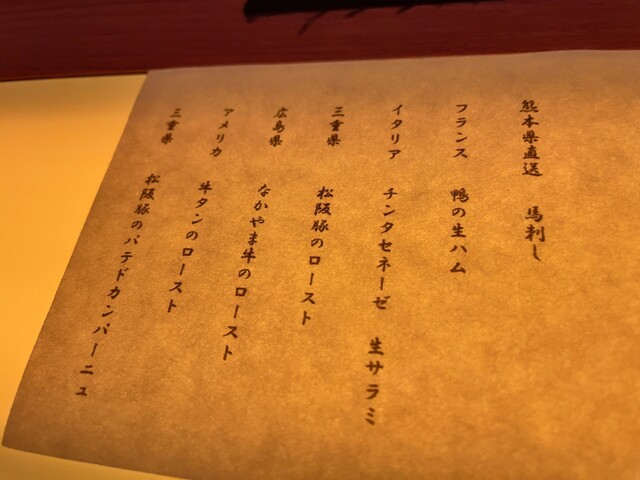 熊本県直送　馬刺し
フランス　鴨の生ハム
イタリア　チンタセネーゼ　生サラミ
三重県　松阪豚のロースト
広島県　なかやま牛のロースト
アメリカ　牛タンのロースト
三重県　松阪豚のパテドカンパーニュ